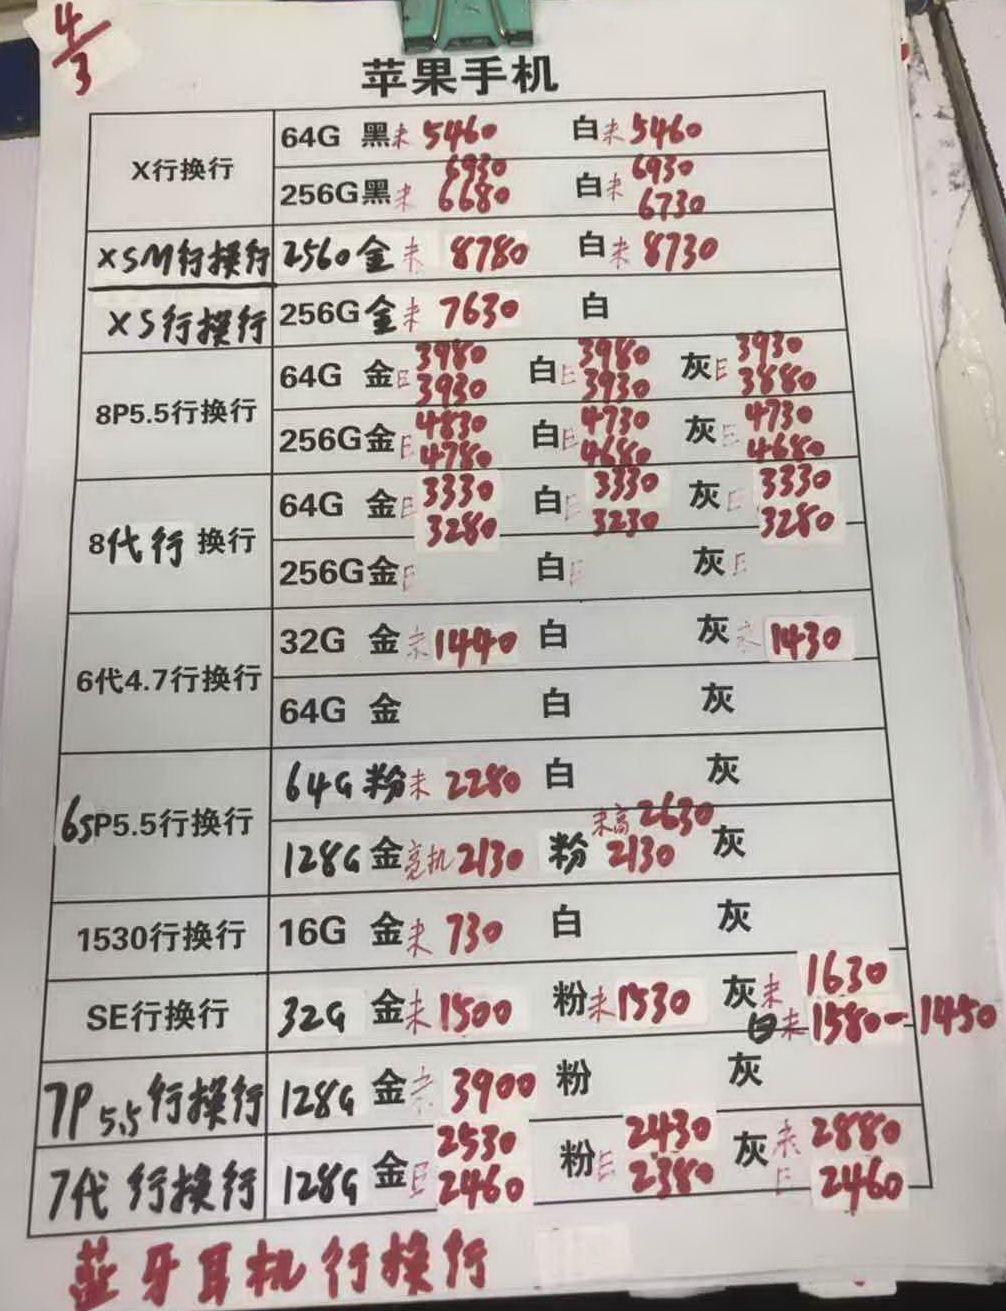 4/3
苹果手机
X行换行
64G 黑未 5460 白未 5460
6930 6930
256G黑未 6680 白未 6730
XSM行换行 256G金未 8780 白未 8730
XS行换行 256G金未 7630 白
8P5.5行换行
3980 3980 3930
64G 金E 3930 白E 3930 灰E 3880
4830 4730 4730
256G金E 4780 白E 4680 灰E 4680
8代行换行
3330 3330 3330
64G 金E 3280 白E 3230 灰E 3280
256G金E 白E 灰E
6代4.7行换行
32G 金未 1440 白 灰未 1430
64G 金 白 灰
6SP5.5行换行
64G 粉未 2280 白 灰
未高 2630
128G 金亮机 2130 粉 2130 灰
1530行换行 16G 金未 730 白 灰
SE行换行 32G 金未 1500 粉未 1530 灰未 1630
白未 1580-1450
7P5.5行换行 128G 金未 3900 粉 灰
7代行换行
2530 2430 未 2880
128G 金E 2460 粉E 2380 灰E 2460
蓝牙耳机行换行